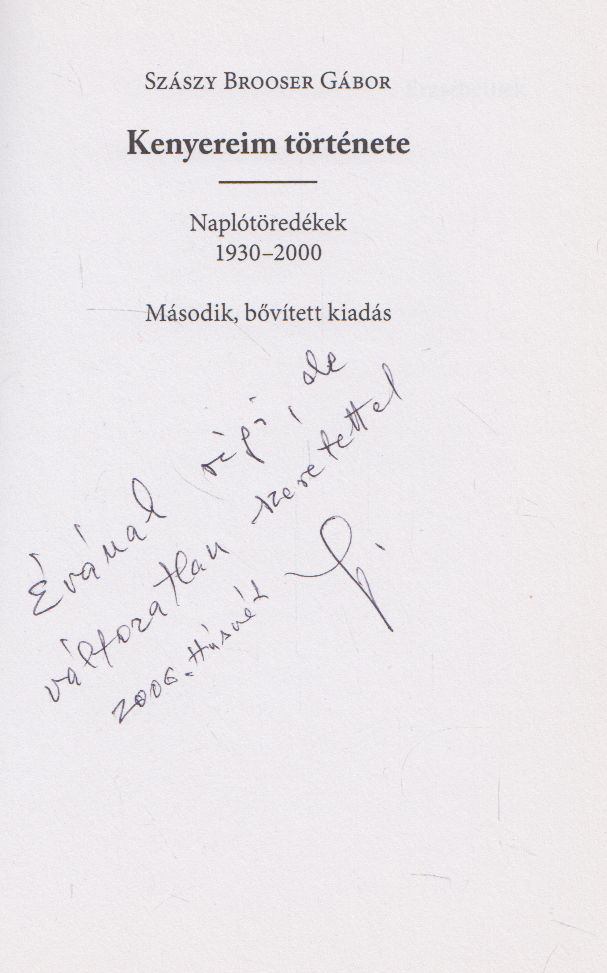 SZÁSZY BROOSER GÁBOR
Kenyereim története
Naplótöredékek
1930–2000
Második, bővített kiadás
Évának régi, de
változatlan szeretettel
2006. Húsvét